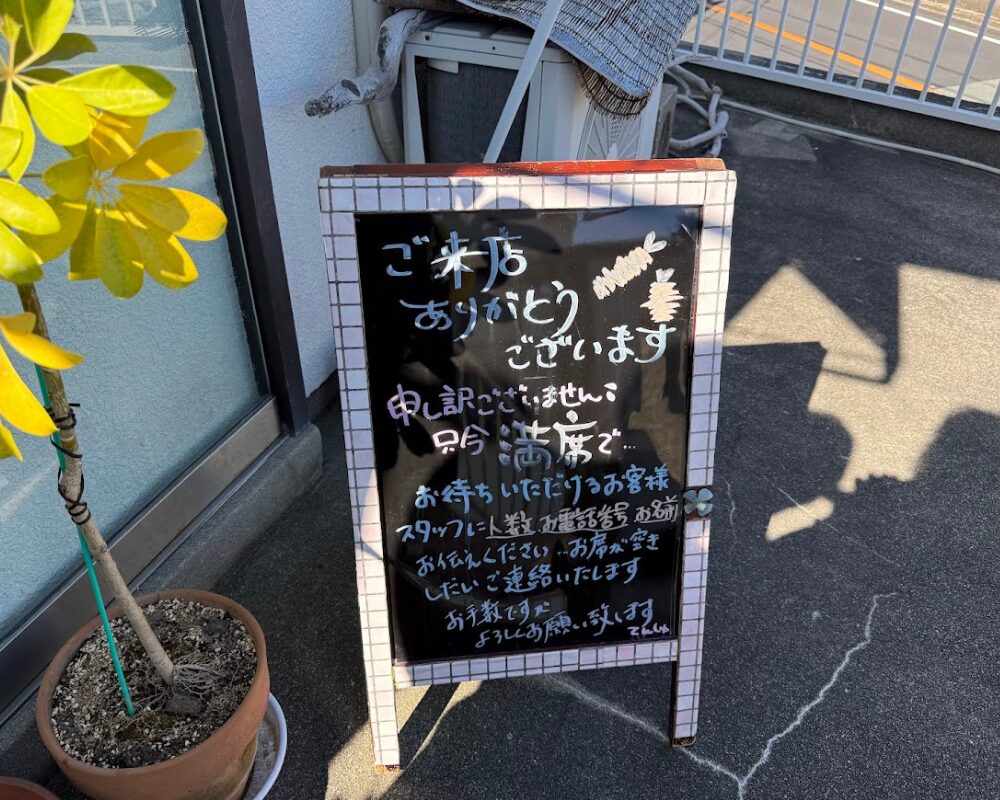 ご来店
ありがとう
ございます
申し訳ございません
只今 満席で…
お待ちいただけるお客様
スタッフに人数 お電話番号 お名前
お伝えください…お席が空き
しだい ご連絡いたします
お手数ですが
よろしくお願い致します
てんしゅ